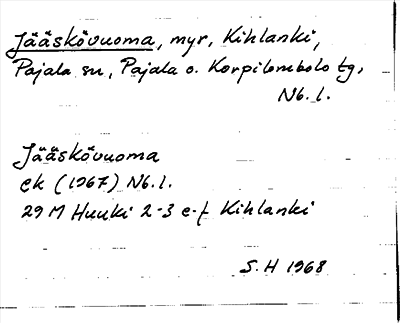 Jääskövuoma, myr, Kihlanki,
Pajala sn, Pajala o. Korpilombolo tg,
Nb. l.
Jääskövuoma
ek (1967) Nb. l.
29 M Huuki 2-3 e-f Kihlanki
S. H 1968